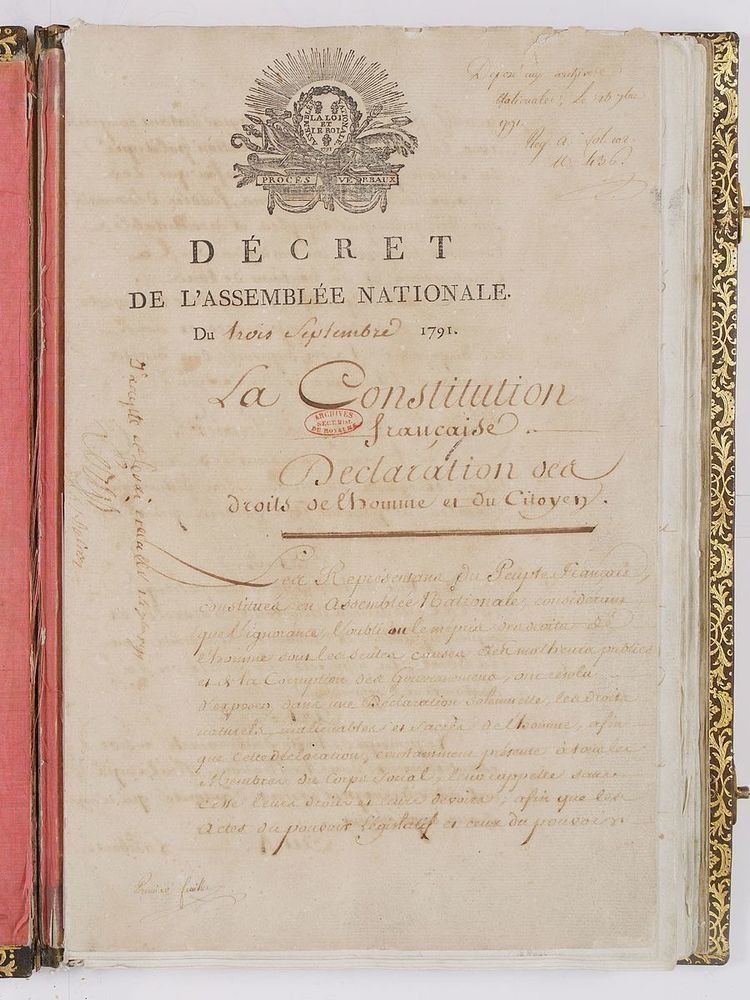 ASSEMBLÉE NATIONALE
LA LOI
ET
LE ROI
1791
PROCES VERBAUX
Déposé aux archives
Nationales, le
1791.
DÉCRET
DE L'ASSEMBLÉE NATIONALE.
Du trois Septembre 1791.
La Constitution
française
ARCHIVES
DU ROYAUME
Déclaration des
droits de l'homme et du Citoyen.
Les Représentans du Peuple François,
constitués en Assemblée Nationale, considérant
que l'ignorance, l'oubli ou le mépris des droits de
l'homme sont les seules causes des malheurs publics
et de la Corruption des Gouvernemens, ont résolu
d'exposer dans une Déclaration Solennelle, les droits
naturels, inaliénables et sacrés de l'homme, afin
que cette déclaration, constamment présente à tous les
Membres du Corps Social, leur rappelle sans
cesse leurs droits et leurs devoirs; afin que les
Actes du pouvoir Législatif et ceux du pouvoir
J'accepte et ferai exécuter
Louis